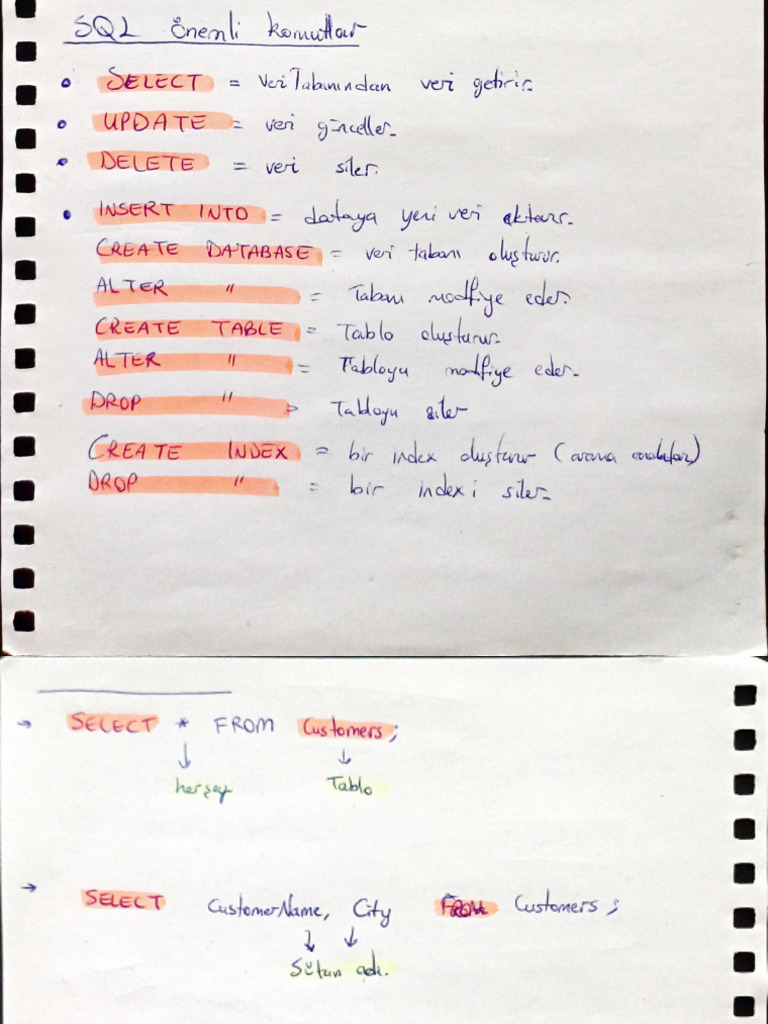 SQL Önemli komutlar
• SELECT = Veri Tabanından veri getirir.
• UPDATE = veri günceller.
• DELETE = veri siler.
• INSERT INTO = dataya yeni veri aktarır.
CREATE DATABASE = veri tabanı oluşturur.
ALTER " = Tabanı modfiye eder.
CREATE TABLE = Tablo oluşturur.
ALTER " = Tabloyu modfiye eder.
DROP " = Tabloyu siler
CREATE INDEX = bir index oluşturur (arama
DROP " = bir index i siler.
→ SELECT * FROM Customers;
↓ ↓
herşey Tablo
→ SELECT CustomerName, City FROM Customers;
↓ ↓
Sütun adı.